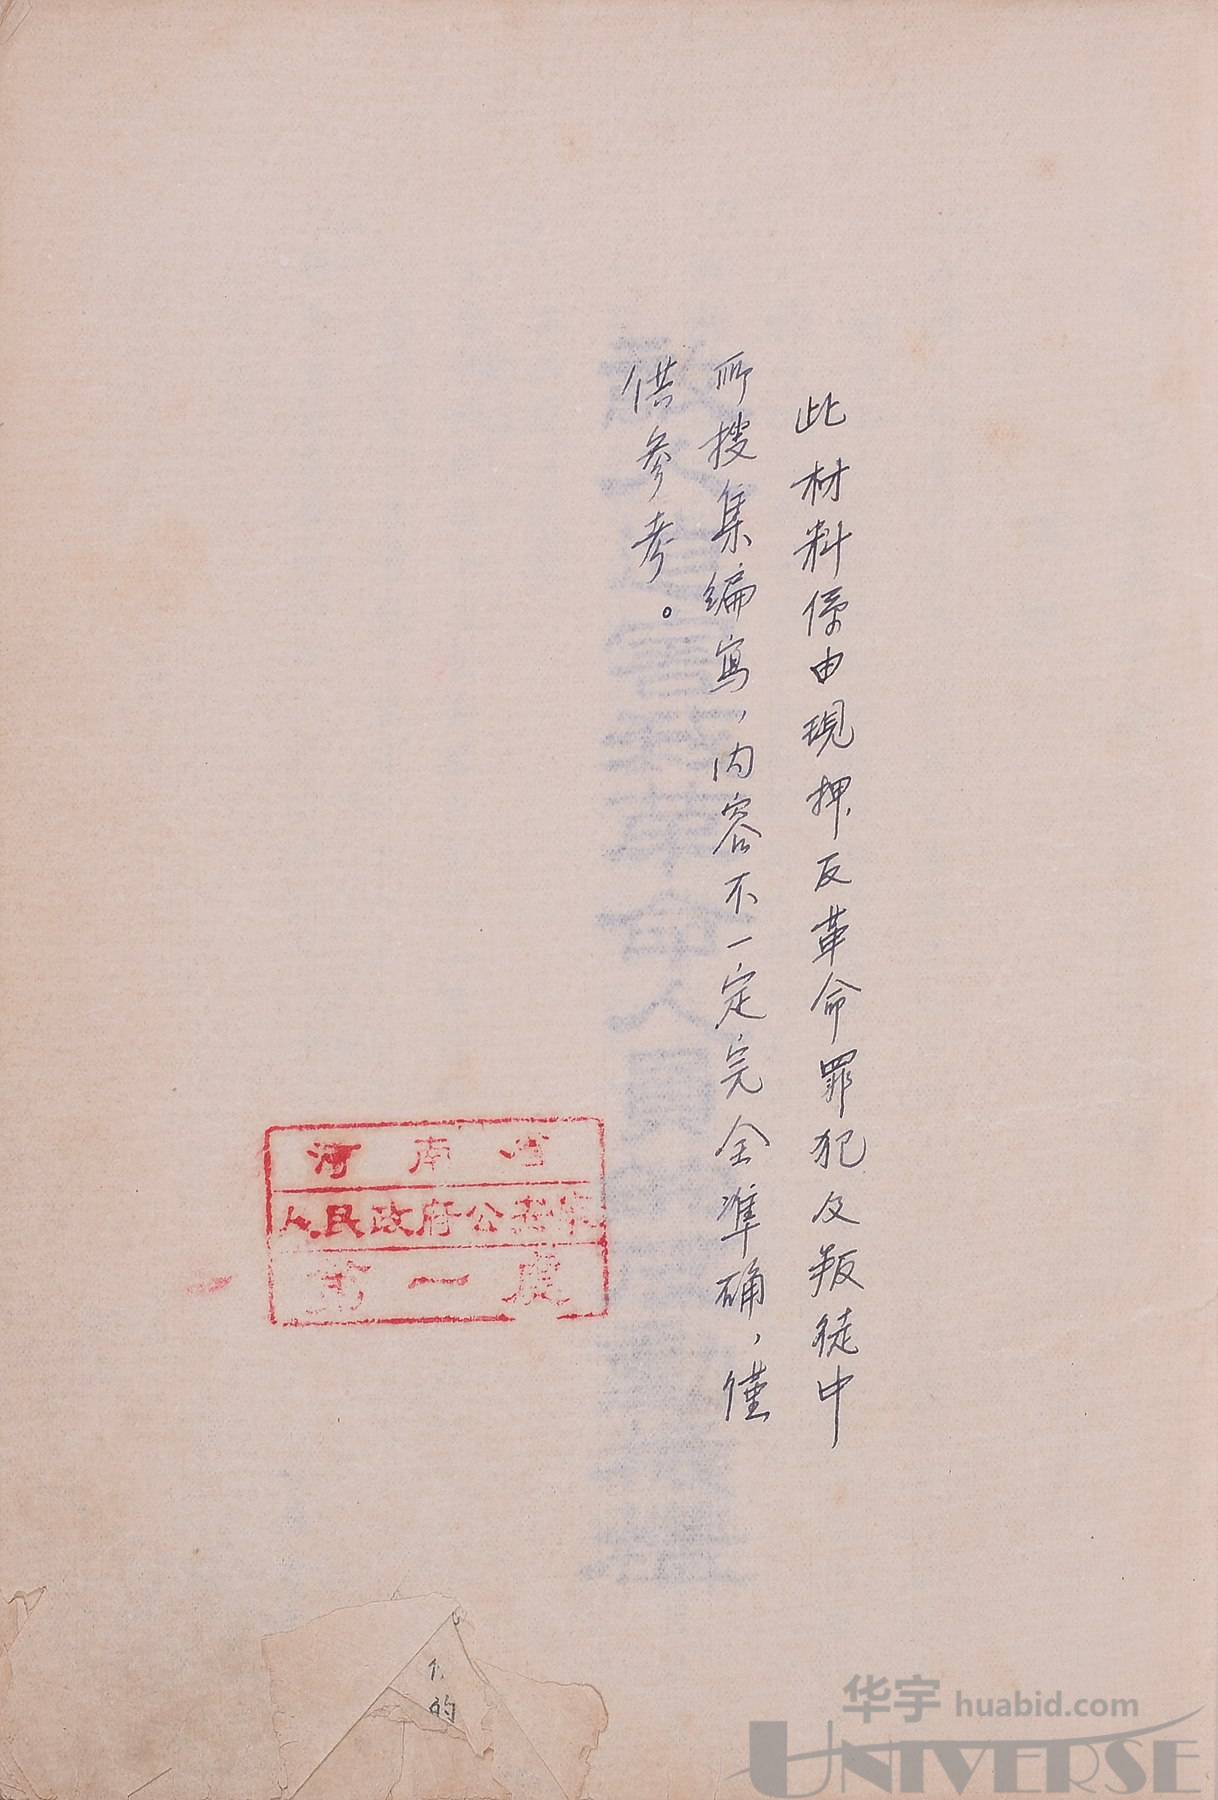 此材料係由現押反革命罪犯及叛徒中
所搜集编寫，内容不一定完全準确，僅
供参考。
河南省
人民政府公安
第一處
的
华宇 huabid.com
UNIVERSE